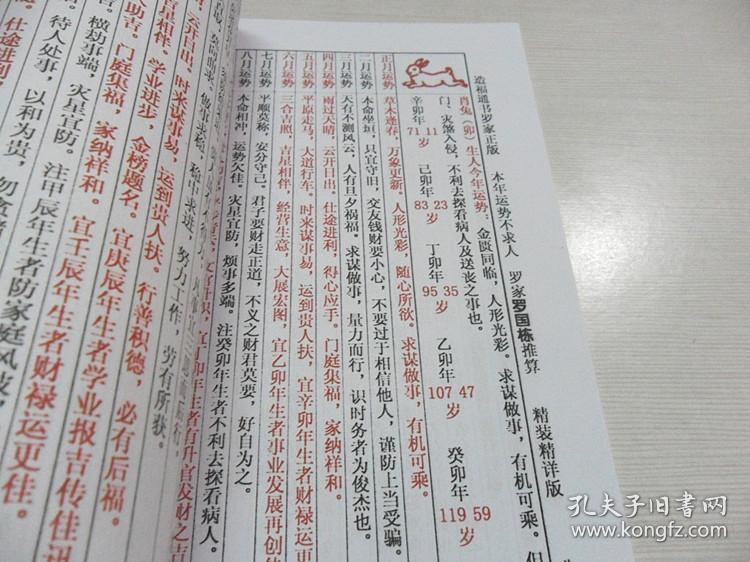 造福通书罗家正版 本年运势不求人 罗家罗国栋推算 精装精详版
肖兔（卯）生人今年运势：金匮同临，人形光彩。求谋做事，有机可乘。但
门、灾煞入侵，不利去探看病人及送丧之事也。
辛卯年 71 11岁 己卯年 83 23岁 丁卯年 95 35岁 乙卯年 107 47岁 癸卯年 119 59岁
正月运势 草木逢春，万象更新。人形光彩，随心所欲。求谋做事，有机可乘。
二月运势 本命坐垣，只宜守旧，交友钱财要小心，不要过于相信他人，谨防上当受骗。
三月运势 天有不测风云，人有旦夕祸福。求谋做事，量力而行，识时务者为俊杰也。
四月运势 雨过天晴，云开日出。仕途进利，得心应手。门庭集福，家纳祥和。
五月运势 平原走马，大道行车。时来谋事易，运到贵人扶，宜辛卯年生者财禄运更
六月运势 三合吉照，吉星相伴。经营生意，大展宏图，宜乙卯年生者事业发展再创佳
七月运势 平顺莫称，安分守己。君子要财走正道，不义之财君莫要，好自为之。
八月运势 本命相冲，运势欠佳。灾星宜防，烦事多端。注癸卯年生者不利去探看病人。
宜丁卯年生者有升官发财之吉
稳中求进，努力工作，劳有所获。
云开日出，时来谋事易，运到贵人扶。行善积德，必有后福。
吉星相伴。学业进步，金榜题名。宜庚辰年生者学业报吉传佳讯
人助吉。门庭集福，家纳祥和。宜壬辰年生者财禄运更佳。
吉。横劫事端，灾星宜防。注甲辰年生者防家庭风波，
待人处事，以和为贵，勿贪
仕途进利
孔夫子旧书网
www.kongfz.com